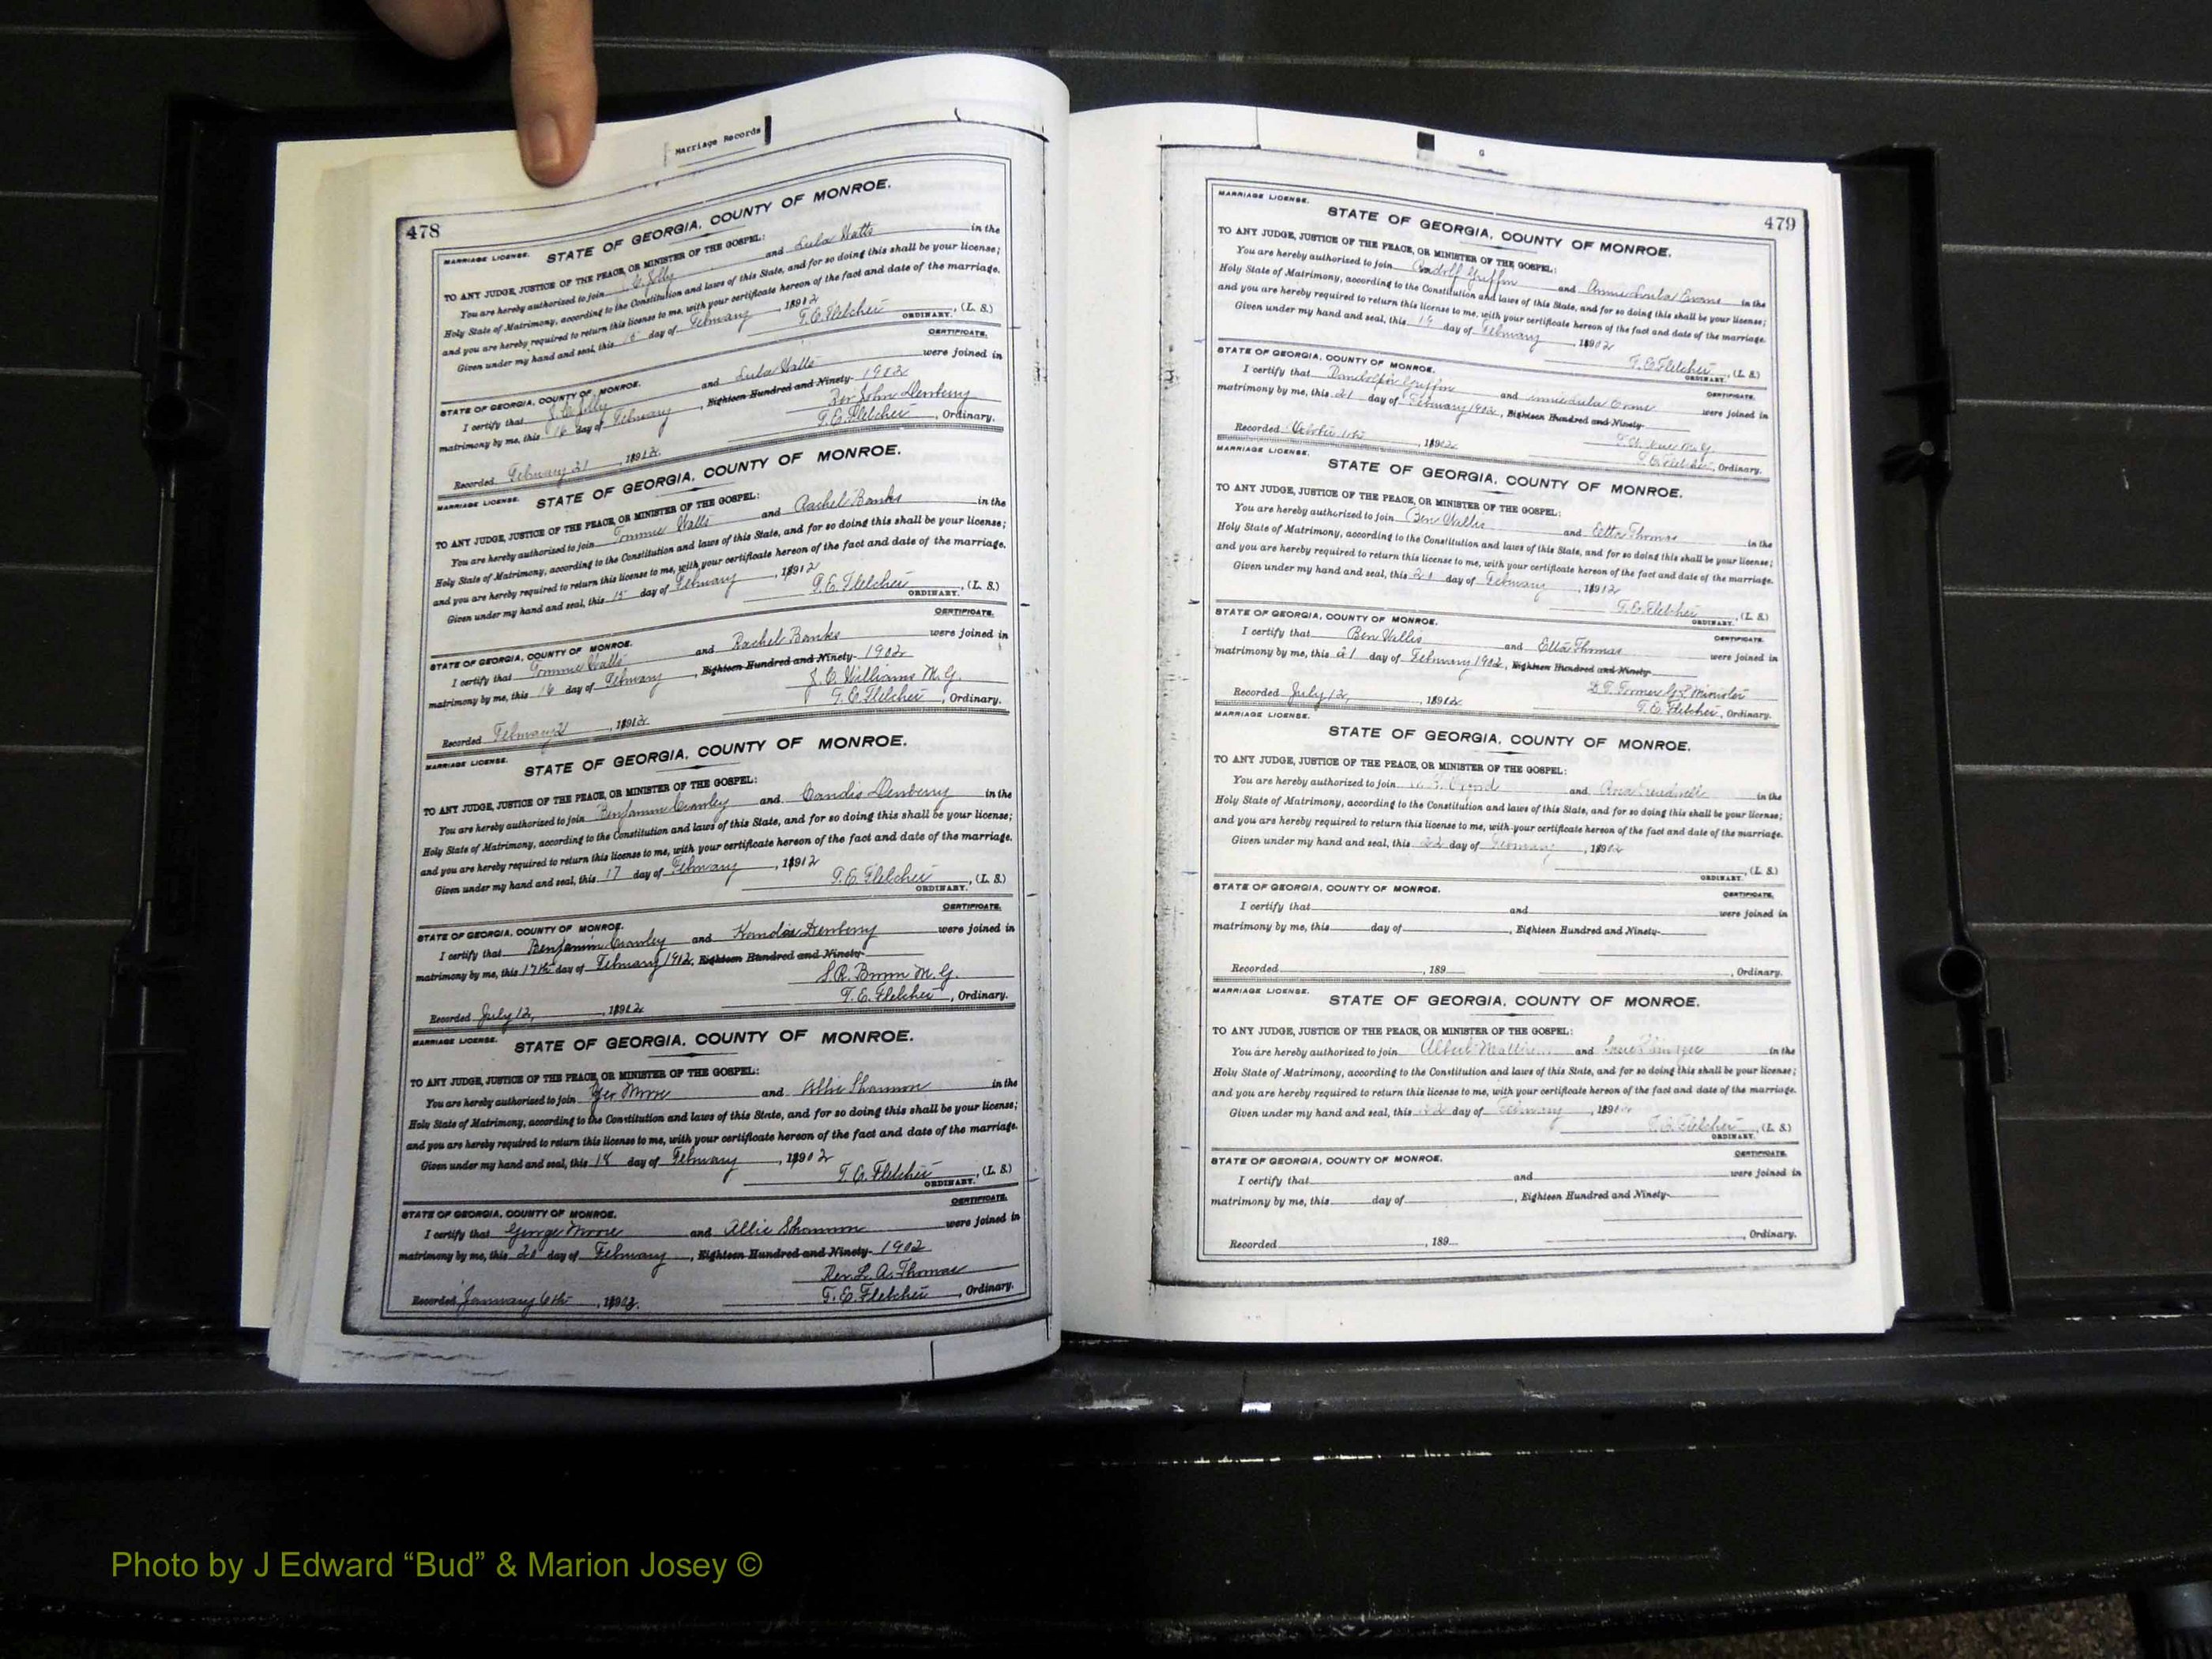 Marriage Records
478
MARRIAGE LICENSE.
STATE OF GEORGIA, COUNTY OF MONROE.
TO ANY JUDGE, JUSTICE OF THE PEACE, OR MINISTER OF THE GOSPEL:
You are hereby authorized to join and Lula Watts in the
Holy State of Matrimony, according to the Constitution and laws of this State, and for so doing this shall be your license;
and you are hereby required to return this license to me, with your certificate hereon of the fact and date of the marriage.
Given under my hand and seal, this 15 day of February, 1902
T. E. Fletcher, (L. S.)
ORDINARY.
CERTIFICATE.
STATE OF GEORGIA, COUNTY OF MONROE.
I certify that and Lula Watts were joined in
matrimony by me, this 16 day of February, Eighteen Hundred and Ninety- 1902
Rev John Denberry
Recorded February 21, 1902. T. E. Fletcher, Ordinary.
MARRIAGE LICENSE.
STATE OF GEORGIA, COUNTY OF MONROE.
TO ANY JUDGE, JUSTICE OF THE PEACE, OR MINISTER OF THE GOSPEL:
You are hereby authorized to join Tommie Watts and Rachel Banks in the
Holy State of Matrimony, according to the Constitution and laws of this State, and for so doing this shall be your license;
and you are hereby required to return this license to me, with your certificate hereon of the fact and date of the marriage.
Given under my hand and seal, this 15 day of February, 1902
T. E. Fletcher, (L. S.)
ORDINARY.
CERTIFICATE.
STATE OF GEORGIA, COUNTY OF MONROE.
I certify that Tommie Watts and Rachel Banks were joined in
matrimony by me, this 16 day of February, Eighteen Hundred and Ninety- 1902
J. C. Williams M. G.
Recorded February 21, 1902. T. E. Fletcher, Ordinary.
MARRIAGE LICENSE.
STATE OF GEORGIA, COUNTY OF MONROE.
TO ANY JUDGE, JUSTICE OF THE PEACE, OR MINISTER OF THE GOSPEL:
You are hereby authorized to join Benjamin Crawley and Candis Denberry in the
Holy State of Matrimony, according to the Constitution and laws of this State, and for so doing this shall be your license;
and you are hereby required to return this license to me, with your certificate hereon of the fact and date of the marriage.
Given under my hand and seal, this 17 day of February, 1902
T. E. Fletcher, (L. S.)
ORDINARY.
CERTIFICATE.
STATE OF GEORGIA, COUNTY OF MONROE.
I certify that Benjamin Crawley and Kandis Denberry were joined in
matrimony by me, this 17th day of February 1902, Eighteen Hundred and Ninety-
S. R. Brown M. G.
Recorded July 12, 1902 T. E. Fletcher, Ordinary.
MARRIAGE LICENSE.
STATE OF GEORGIA, COUNTY OF MONROE.
TO ANY JUDGE, JUSTICE OF THE PEACE, OR MINISTER OF THE GOSPEL:
You are hereby authorized to join Moore and Allie Shannon in the
Holy State of Matrimony, according to the Constitution and laws of this State, and for so doing this shall be your license;
and you are hereby required to return this license to me, with your certificate hereon of the fact and date of the marriage.
Given under my hand and seal, this 18 day of February, 1902
T. E. Fletcher, (L. S.)
ORDINARY.
CERTIFICATE.
STATE OF GEORGIA, COUNTY OF MONROE.
I certify that George Moore and Allie Shannon were joined in
matrimony by me, this 20 day of February, Eighteen Hundred and Ninety- 1902
Rev. L. A. Thomas
Recorded January 6th, 1903. T. E. Fletcher, Ordinary.
479
MARRIAGE LICENSE.
STATE OF GEORGIA, COUNTY OF MONROE.
TO ANY JUDGE, JUSTICE OF THE PEACE, OR MINISTER OF THE GOSPEL:
You are hereby authorized to join Griffin and Annie Lula Evans in the
Holy State of Matrimony, according to the Constitution and laws of this State, and for so doing this shall be your license;
and you are hereby required to return this license to me, with your certificate hereon of the fact and date of the marriage.
Given under my hand and seal, this day of February, 1902
T. E. Fletcher, (L. S.)
ORDINARY.
CERTIFICATE.
STATE OF GEORGIA, COUNTY OF MONROE.
I certify that Randolph Griffin and Annie Lula Evans were joined in
matrimony by me, this 21 day of February 1902, Eighteen Hundred and Ninety-
M. G.
Recorded October, 1902. T. E. Fletcher, Ordinary.
MARRIAGE LICENSE.
STATE OF GEORGIA, COUNTY OF MONROE.
TO ANY JUDGE, JUSTICE OF THE PEACE, OR MINISTER OF THE GOSPEL:
You are hereby authorized to join Ben Willis and Etta Thomas in the
Holy State of Matrimony, according to the Constitution and laws of this State, and for so doing this shall be your license;
and you are hereby required to return this license to me, with your certificate hereon of the fact and date of the marriage.
Given under my hand and seal, this 21 day of February, 1902
T. E. Fletcher, (L. S.)
ORDINARY.
CERTIFICATE.
STATE OF GEORGIA, COUNTY OF MONROE.
I certify that Ben Willis and Etta Thomas were joined in
matrimony by me, this 21 day of February 1902, Eighteen Hundred and Ninety-
Minister
Recorded July 12, 1902 T. E. Fletcher, Ordinary.
MARRIAGE LICENSE.
STATE OF GEORGIA, COUNTY OF MONROE.
TO ANY JUDGE, JUSTICE OF THE PEACE, OR MINISTER OF THE GOSPEL:
You are hereby authorized to join and Treadwell in the
Holy State of Matrimony, according to the Constitution and laws of this State, and for so doing this shall be your license;
and you are hereby required to return this license to me, with your certificate hereon of the fact and date of the marriage.
Given under my hand and seal, this 22 day of February, 1902
(L. S.)
ORDINARY.
CERTIFICATE.
STATE OF GEORGIA, COUNTY OF MONROE.
I certify that and were joined in
matrimony by me, this day of , Eighteen Hundred and Ninety-
Recorded , 189 , Ordinary.
MARRIAGE LICENSE.
STATE OF GEORGIA, COUNTY OF MONROE.
TO ANY JUDGE, JUSTICE OF THE PEACE, OR MINISTER OF THE GOSPEL:
You are hereby authorized to join Albert and in the
Holy State of Matrimony, according to the Constitution and laws of this State, and for so doing this shall be your license;
and you are hereby required to return this license to me, with your certificate hereon of the fact and date of the marriage.
Given under my hand and seal, this 22 day of February, 190
T. E. Fletcher, (L. S.)
ORDINARY.
CERTIFICATE.
STATE OF GEORGIA, COUNTY OF MONROE.
I certify that and were joined in
matrimony by me, this day of , Eighteen Hundred and Ninety-
Recorded , 189 , Ordinary.
Photo by J Edward “Bud” & Marion Josey ©